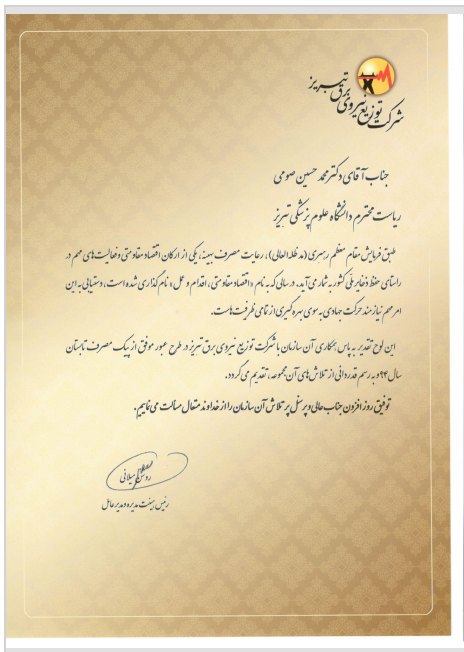 شرکت توزیع نیروی برق تبریز
جناب آقای دکتر محمد حسین صومی
ریاست محترم دانشگاه علوم پزشکی تبریز
طبق فرمایش مقام معظم رهبری (مد ظله العالی)، رعایت مصرف بهینه، یکی از ارکان اقتصاد مقاومتی و فعالیت های مهم در
راستای حفظ ذخایر ملی کشور به شمار می آید. در سالی که به نام «اقتصاد مقاومتی، اقدام و عمل» نام گذاری شده است، دستیابی به این
امر مهم نیازمند حرکت جهادی به سوی بهره گیری از تمامی ظرفیت هاست.
این لوح تقدیر به پاس همکاری آن سازمان با شرکت توزیع نیروی برق تبریز در طرح عبور موفق از پیک مصرف تابستان
سال ۹۴ و به رسم قدردانی از تلاش های آن مجموعه، تقدیم می گردد.
توفیق روز افزون جناب عالی و پرسنل پر تلاش آن سازمان را از خداوند متعال مسألت می نماییم.
میلانی
رئیس هیئت مدیره و مدیر عامل